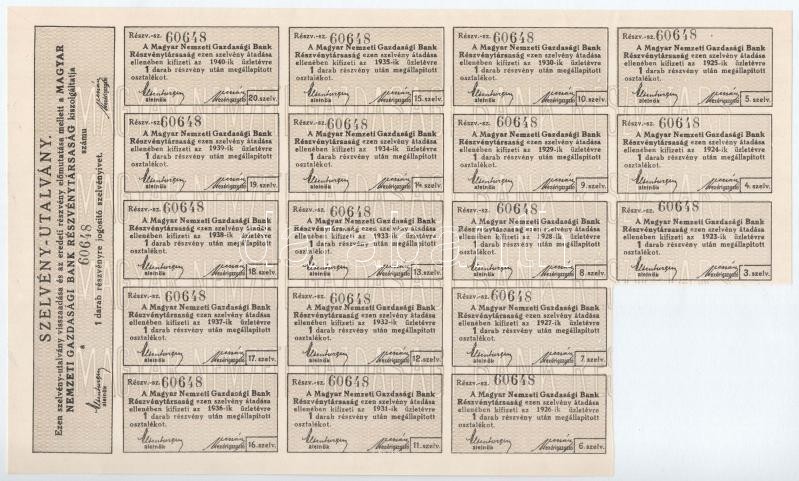 SZELVÉNY-UTALVÁNY.
Ezen szelvény-utalvány visszaadása és az eredeti részvény előmutatása mellett a MAGYAR
NEMZETI GAZDASÁGI BANK RÉSZVÉNYTÁRSASÁG kiszolgáltatja
a 60648 számu
1 darab részvényre jogositó szelvényivet.
alelnök
vezérigazgató
Részv.-sz. 60648
A Magyar Nemzeti Gazdasági Bank
Részvénytársaság ezen szelvény átadása
ellenében kifizeti az 1940-ik üzletévre
1 darab részvény után megállapitott
osztalékot.
alelnök vezérigazgató 20. szelv.
Részv.-sz. 60648
A Magyar Nemzeti Gazdasági Bank
Részvénytársaság ezen szelvény átadása
ellenében kifizeti az 1935-ik üzletévre
1 darab részvény után megállapitott
osztalékot.
alelnök vezérigazgató 15. szelv.
Részv.-sz. 60648
A Magyar Nemzeti Gazdasági Bank
Részvénytársaság ezen szelvény átadása
ellenében kifizeti az 1930-ik üzletévre
1 darab részvény után megállapitott
osztalékot.
alelnök vezérigazgató 10. szelv.
Részv.-sz. 60648
A Magyar Nemzeti Gazdasági Bank
Részvénytársaság ezen szelvény átadása
ellenében kifizeti az 1925-ik üzletévre
1 darab részvény után megállapitott
osztalékot.
alelnök vezérigazgató 5. szelv.
Részv.-sz. 60648
A Magyar Nemzeti Gazdasági Bank
Részvénytársaság ezen szelvény átadása
ellenében kifizeti az 1939-ik üzletévre
1 darab részvény után megállapitott
osztalékot.
alelnök vezérigazgató 19. szelv.
Részv.-sz. 60648
A Magyar Nemzeti Gazdasági Bank
Részvénytársaság ezen szelvény átadása
ellenében kifizeti az 1934-ik üzletévre
1 darab részvény után megállapitott
osztalékot.
alelnök vezérigazgató 14. szelv.
Részv.-sz. 60648
A Magyar Nemzeti Gazdasági Bank
Részvénytársaság ezen szelvény átadása
ellenében kifizeti az 1929-ik üzletévre
1 darab részvény után megállapitott
osztalékot.
alelnök vezérigazgató 9. szelv.
Részv.-sz. 60648
A Magyar Nemzeti Gazdasági Bank
Részvénytársaság ezen szelvény átadása
ellenében kifizeti az 1924-ik üzletévre
1 darab részvény után megállapitott
osztalékot.
alelnök vezérigazgató 4. szelv.
Részv.-sz. 60648
A Magyar Nemzeti Gazdasági Bank
Részvénytársaság ezen szelvény átadása
ellenében kifizeti az 1938-ik üzletévre
1 darab részvény után megállapitott
osztalékot.
alelnök vezérigazgató 18. szelv.
Részv.-sz. 60648
A Magyar Nemzeti Gazdasági Bank
Részvénytársaság ezen szelvény átadása
ellenében kifizeti az 1933-ik üzletévre
1 darab részvény után megállapitott
osztalékot.
alelnök vezérigazgató 13. szelv.
Részv.-sz. 60648
A Magyar Nemzeti Gazdasági Bank
Részvénytársaság ezen szelvény átadása
ellenében kifizeti az 1928-ik üzletévre
1 darab részvény után megállapitott
osztalékot.
alelnök vezérigazgató 8. szelv.
Részv.-sz. 60648
A Magyar Nemzeti Gazdasági Bank
Részvénytársaság ezen szelvény átadása
ellenében kifizeti az 1923-ik üzletévre
1 darab részvény után megállapitott
osztalékot.
alelnök vezérigazgató 3. szelv.
Részv.-sz. 60648
A Magyar Nemzeti Gazdasági Bank
Részvénytársaság ezen szelvény átadása
ellenében kifizeti az 1937-ik üzletévre
1 darab részvény után megállapitott
osztalékot.
alelnök vezérigazgató 17. szelv.
Részv.-sz. 60648
A Magyar Nemzeti Gazdasági Bank
Részvénytársaság ezen szelvény átadása
ellenében kifizeti az 1932-ik üzletévre
1 darab részvény után megállapitott
osztalékot.
alelnök vezérigazgató 12. szelv.
Részv.-sz. 60648
A Magyar Nemzeti Gazdasági Bank
Részvénytársaság ezen szelvény átadása
ellenében kifizeti az 1927-ik üzletévre
1 darab részvény után megállapitott
osztalékot.
alelnök vezérigazgató 7. szelv.
Részv.-sz. 60648
A Magyar Nemzeti Gazdasági Bank
Részvénytársaság ezen szelvény átadása
ellenében kifizeti az 1936-ik üzletévre
1 darab részvény után megállapitott
osztalékot.
alelnök vezérigazgató 16. szelv.
Részv.-sz. 60648
A Magyar Nemzeti Gazdasági Bank
Részvénytársaság ezen szelvény átadása
ellenében kifizeti az 1931-ik üzletévre
1 darab részvény után megállapitott
osztalékot.
alelnök vezérigazgató 11. szelv.
Részv.-sz. 60648
A Magyar Nemzeti Gazdasági Bank
Részvénytársaság ezen szelvény átadása
ellenében kifizeti az 1926-ik üzletévre
1 darab részvény után megállapitott
osztalékot.
alelnök vezérigazgató 6. szelv.